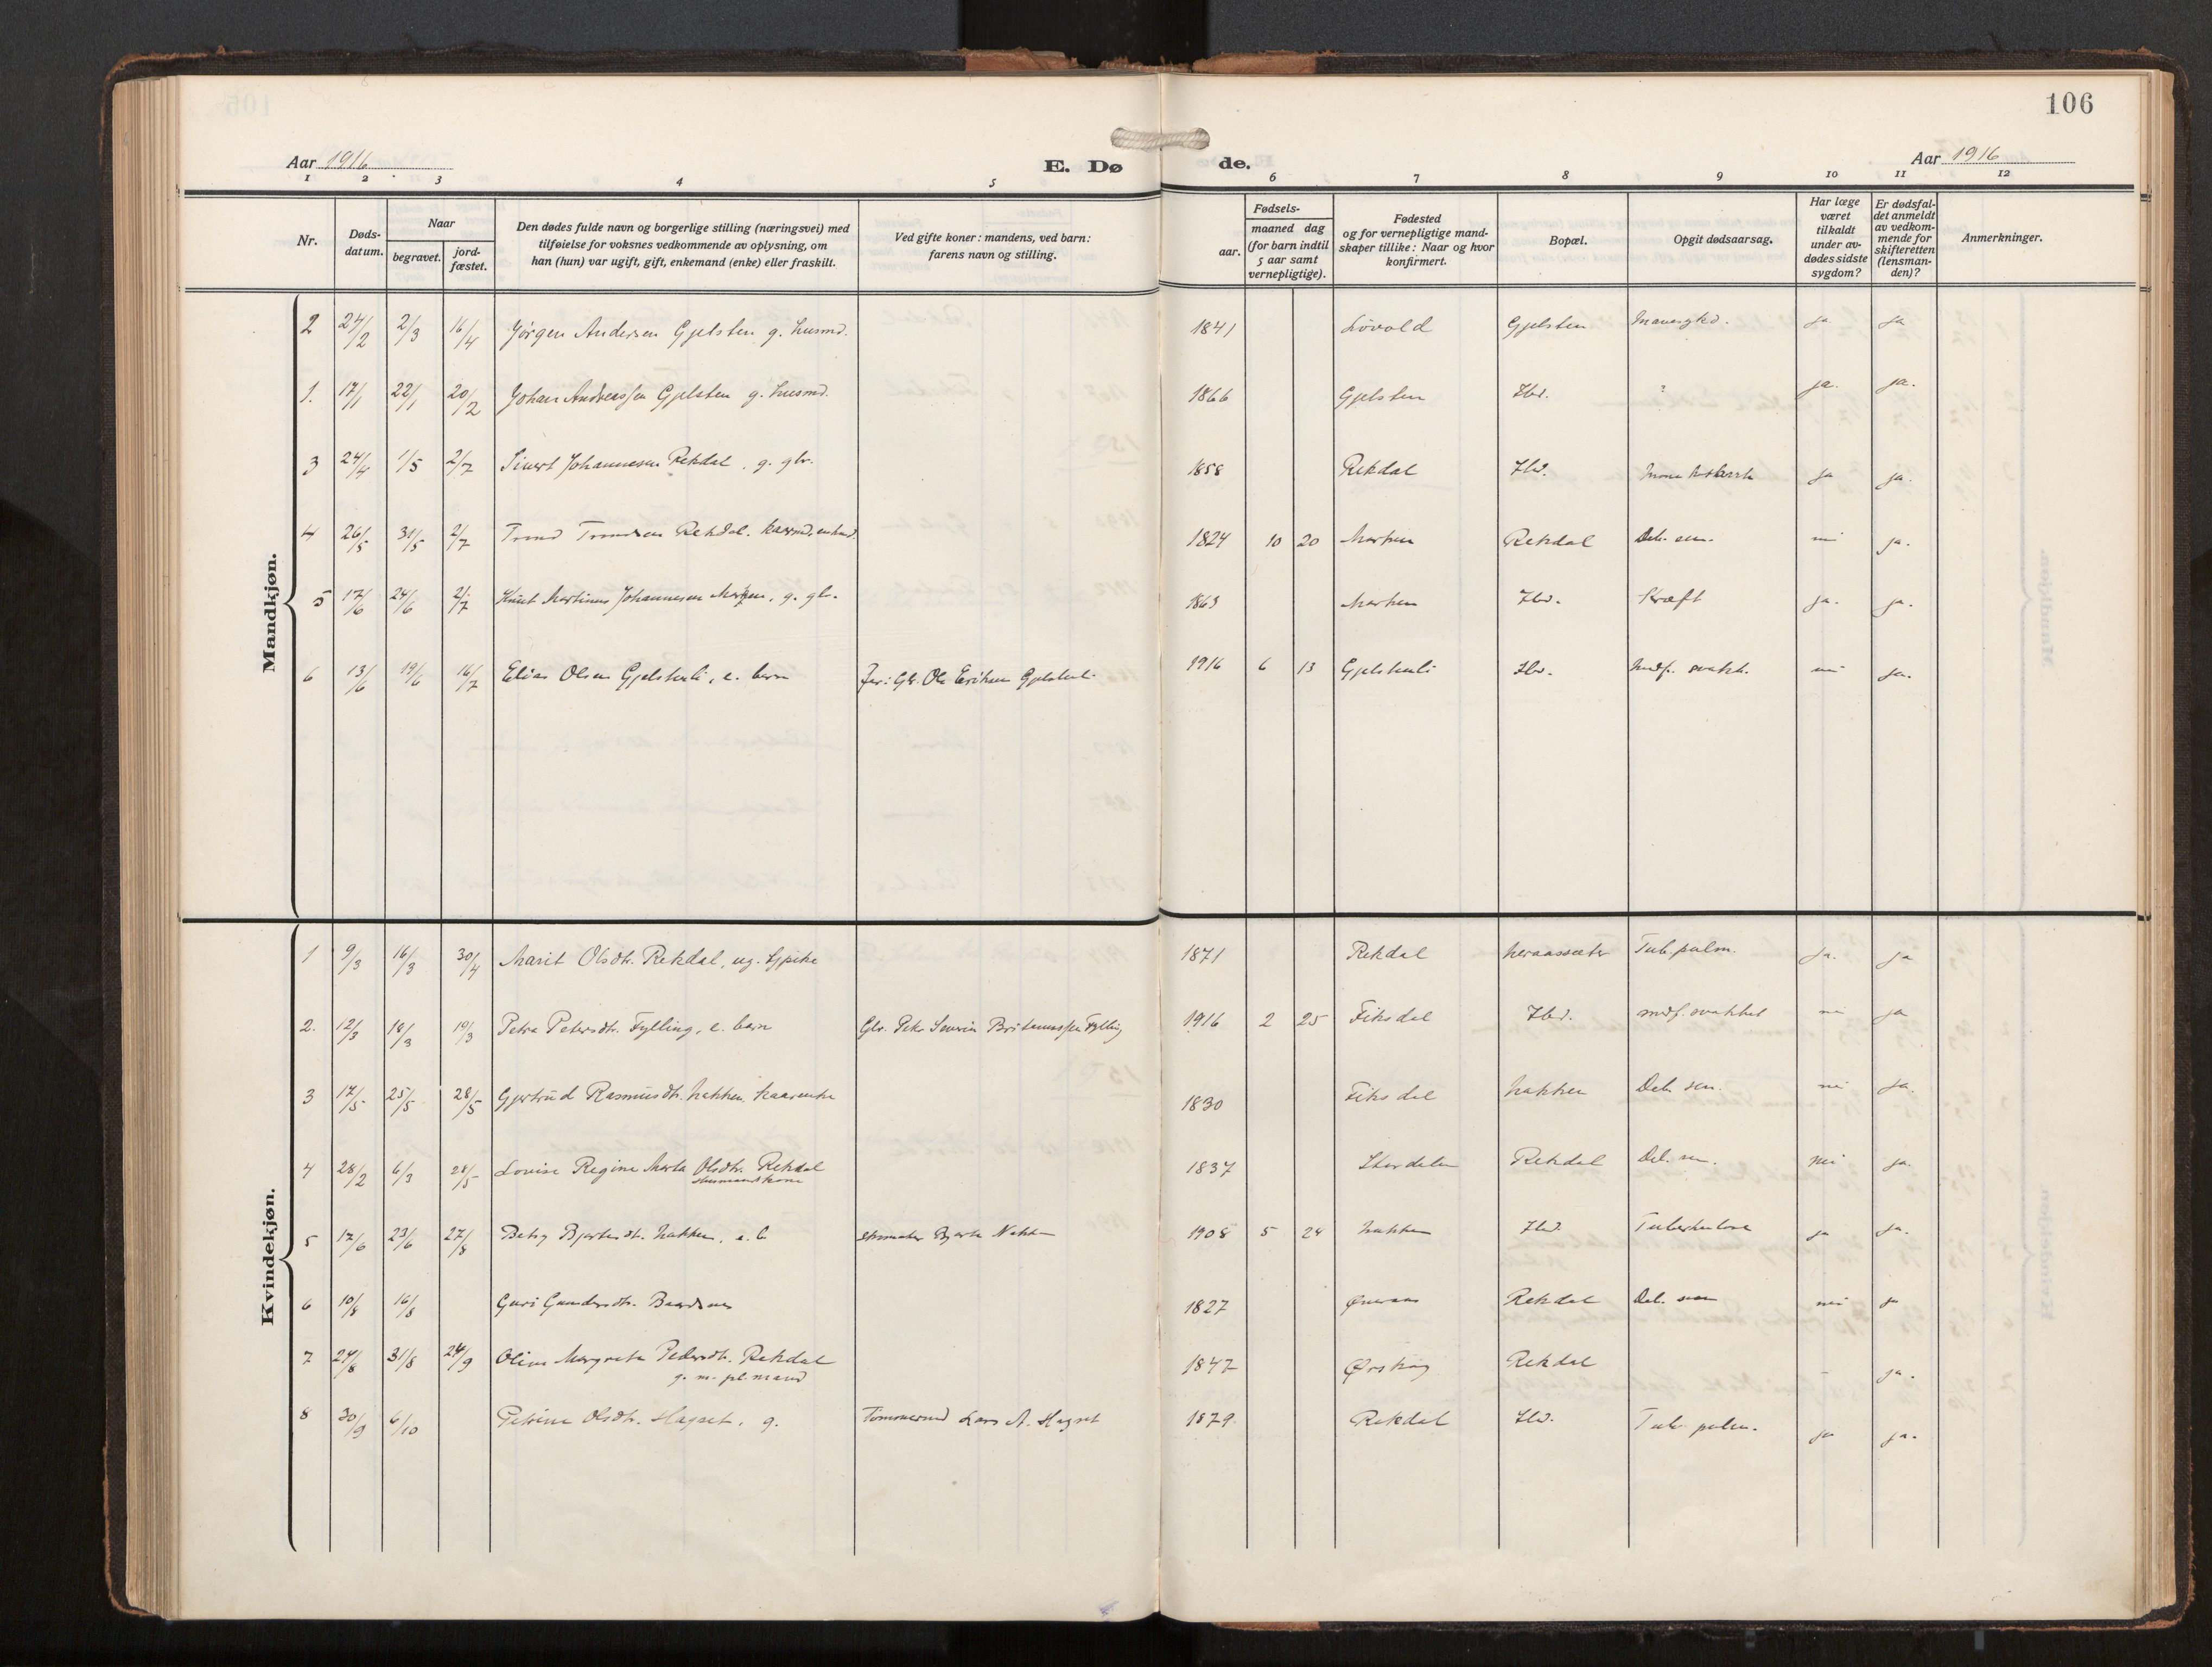 106
Aar 1916
E. Dø
de.
Aar 1916
1 2 3 4 5 6 7 8 9 10 11 12
Nr.
Døds-
datum.
Naar
begravet.
jord-
fæstet.
Den dødes fulde navn og borgerlige stilling (næringsvei) med
tilføielse for voksnes vedkommende av oplysning, om
han (hun) var ugift, gift, enkemand (enke) eller fraskilt.
Ved gifte koner: mandens, ved barn:
farens navn og stilling.
Fødsels-
aar.
maaned dag
(for barn indtil
5 aar samt
vernepligtige).
Fødested
og for vernepligtige mand-
skaper tillike: Naar og hvor
konfirmert.
Bopæl.
Opgit dødsaarsag.
Har læge
været
tilkaldt
under av-
dødes sidste
sygdom?
Er dødsfal-
det anmeldt
av vedkom-
mende for
skifteretten
(lensman-
den)?
Anmerkninger.
Mandkjøn.
2 24/2 2/3 16/4 Jørgen Andersen Gjelsten g. husmd. 1841 Løvold Gjelsten ja ja
1. 17/1 22/1 20/2 Johan Andreassen Gjelsten g. husmd. 1866 Gjelsten Ibd. ? ja. ja.
3 24/4 1/5 2/7 Sivert Johannesen Rekdal. g. gbr. 1858 Rekdal Ibd. ja ja.
4 26/5 31/5 2/7 Trond Trondsen Rekdal. 1824 10 20 Marken Rekdal Deb. sen. nei ja.
5 17/6 24/6 2/7 Knut Martinus Johannesen Marken, g. gbr. 1863 Marken Ibd. Kræft ja. ja.
6 13/6 19/6 16/7 Elias Olsen Gjelstenli, e. barn Far: Gbr. Ole Eriksen Gjelstenli 1916 6 13 Gjelstenli Ibd. Medf. svakh. nei ja.
Kvindekjøn.
1 9/3 16/3 30/4 Marit Olsdtr. Rekdal, ug. Gjeike 1871 Rekdal Tub. pulm. ja. ja
2. 12/3 18/3 19/3 Petra Petersdtr. Fylling, e. barn Gbr. Peter Severin Fylling 1916 2 25 Fiksdal Ibd. medf. svakhet nei ja
3 17/5 25/5 28/5 Gjertrud Rasmusdtr. Nakken. kaarenke 1830 Fiksdal Nakken Deb. sen. nei ja.
4 28/2 6/3 28/5 Lovise Regine Marta Olsdtr. Rekdal
Husmandskone 1837 Stordalen Rekdal Deb. sen. nei ja.
5 17/6 23/6 27/8 Betsy Bjartesdt. Nakken. e. b Skomaker Bjarte Nakken 1908 5 24 Nakken Ibd. Tuberkulose ja ja.
6 10/8 16/8 Guri Gundersdtr. Baardsnes 1827 Øveraas Rekdal Deb. sen nei ja
7 24/8 31/8 24/9 Oline Margreta Pedersdt. Rekdal
g. m. pl. mand 1847 Ørskog Rekdal – ja.
8 30/9 6/10 Petrine Olsdtr. Hagset. g. Tømmermd Lars A. Hagset 1879 Rekdal Ibd. Tub. pulm. ja ja.